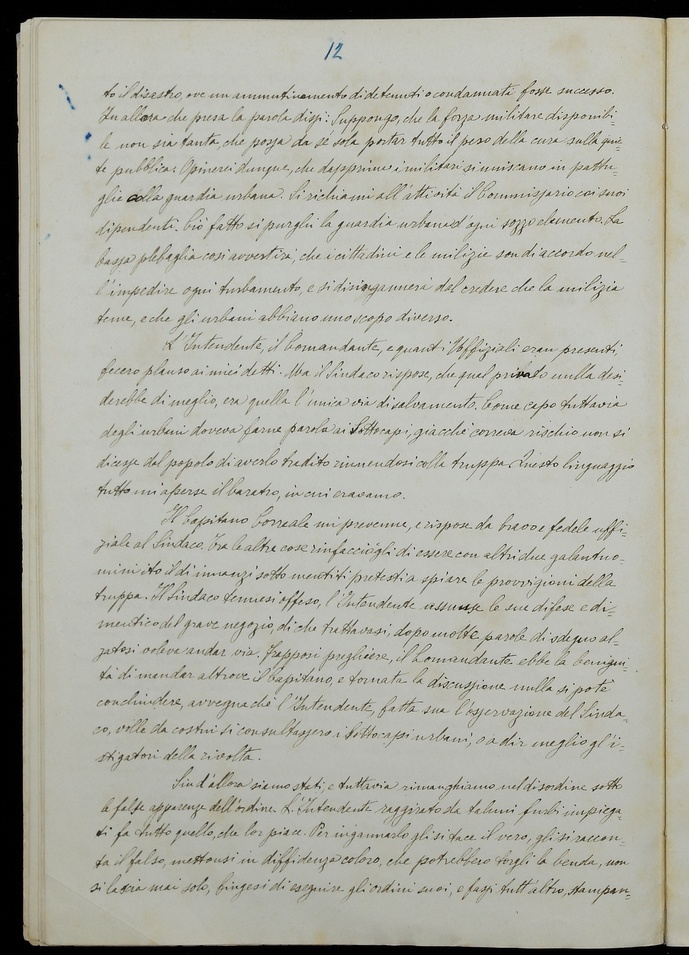 12
to il disastro, ove un ammutinamento di detenuti o condannati fosse successo.
In allora che presa la parola dissi: Suppongo, che la forza militare disponibi-
le non sia tanta, che possa da sé sola portar tutto il peso della cura sulla quie-
te pubblica: Opinerei dunque, che dapprima i militari si uniscano in pattu-
glie colla guardia urbana. Si richiami all'attività il Commissario coi suoi
dipendenti. Ciò fatto si purghi la guardia urbana d'ogni sozzo elemento. La
bassa plebaglia così avvertirà, che i cittadini e le milizie son di accordo nel-
l'impedire ogni turbamento, e si disingannerà del credere che la milizia
teme, e che gli urbani abbiano uno scopo diverso.
L'Intendente, il Comandante, e quanti Uffiziali eran presenti,
fecero plauso ai miei detti. Ma il Sindaco rispose, che qual privato nulla desi-
derebbe di meglio, era quella l'unica via di salvamento. Come capo tuttavia
degli urbani doveva farne parola ai Sottocapi, giacchè correva rischio non si
dicesse dal popolo di averlo tradito riunendosi colla truppa. Questo linguaggio
tutto mi aperse il baratro, in cui eravamo.
Il Capitano Correale mi prevenne, e rispose da bravo e fedele uffi-
ziale al Sindaco. Tra le altre cose rinfacciògli di essere con altri due galantuo-
mini ito il dì innanzi sotto mentiti pretesti a spiare le provvigioni della
truppa. Il Sindaco tennesi offeso, l'Intendente assunse le sue difese e di-
mentico del grave negozio, di che trattavasi, dopo molte parole di sdegno al-
zatosi voleva andar via. Frapposi preghiere, il Comandante ebbe la benigni-
tà di mandar altrove il Capitano, e tornata la discussione nulla si potè
conchiudere, avvegnachè l'Intendente, fatta sua l'osservazione del Sinda-
co, volle da costui si consultassero i Sottocapi urbani, o a dir meglio gl'i-
stigatori della rivolta.
Sin d'allora siamo stati, e tuttavia rimanghiamo nel disordine sotto
le false apparenze dell'ordine. L'Intendente raggirato da taluni furbi impiega-
ti fa tutto quello, che lor piace. Per ingannarlo gli si tace il vero, gli si raccon-
ta il falso, mettonsi in diffidenza coloro, che potrebbero torgli la benda, non
si lascia mai solo, fingesi di eseguire gli ordini suoi, e fassi tutt'altro, stampan-